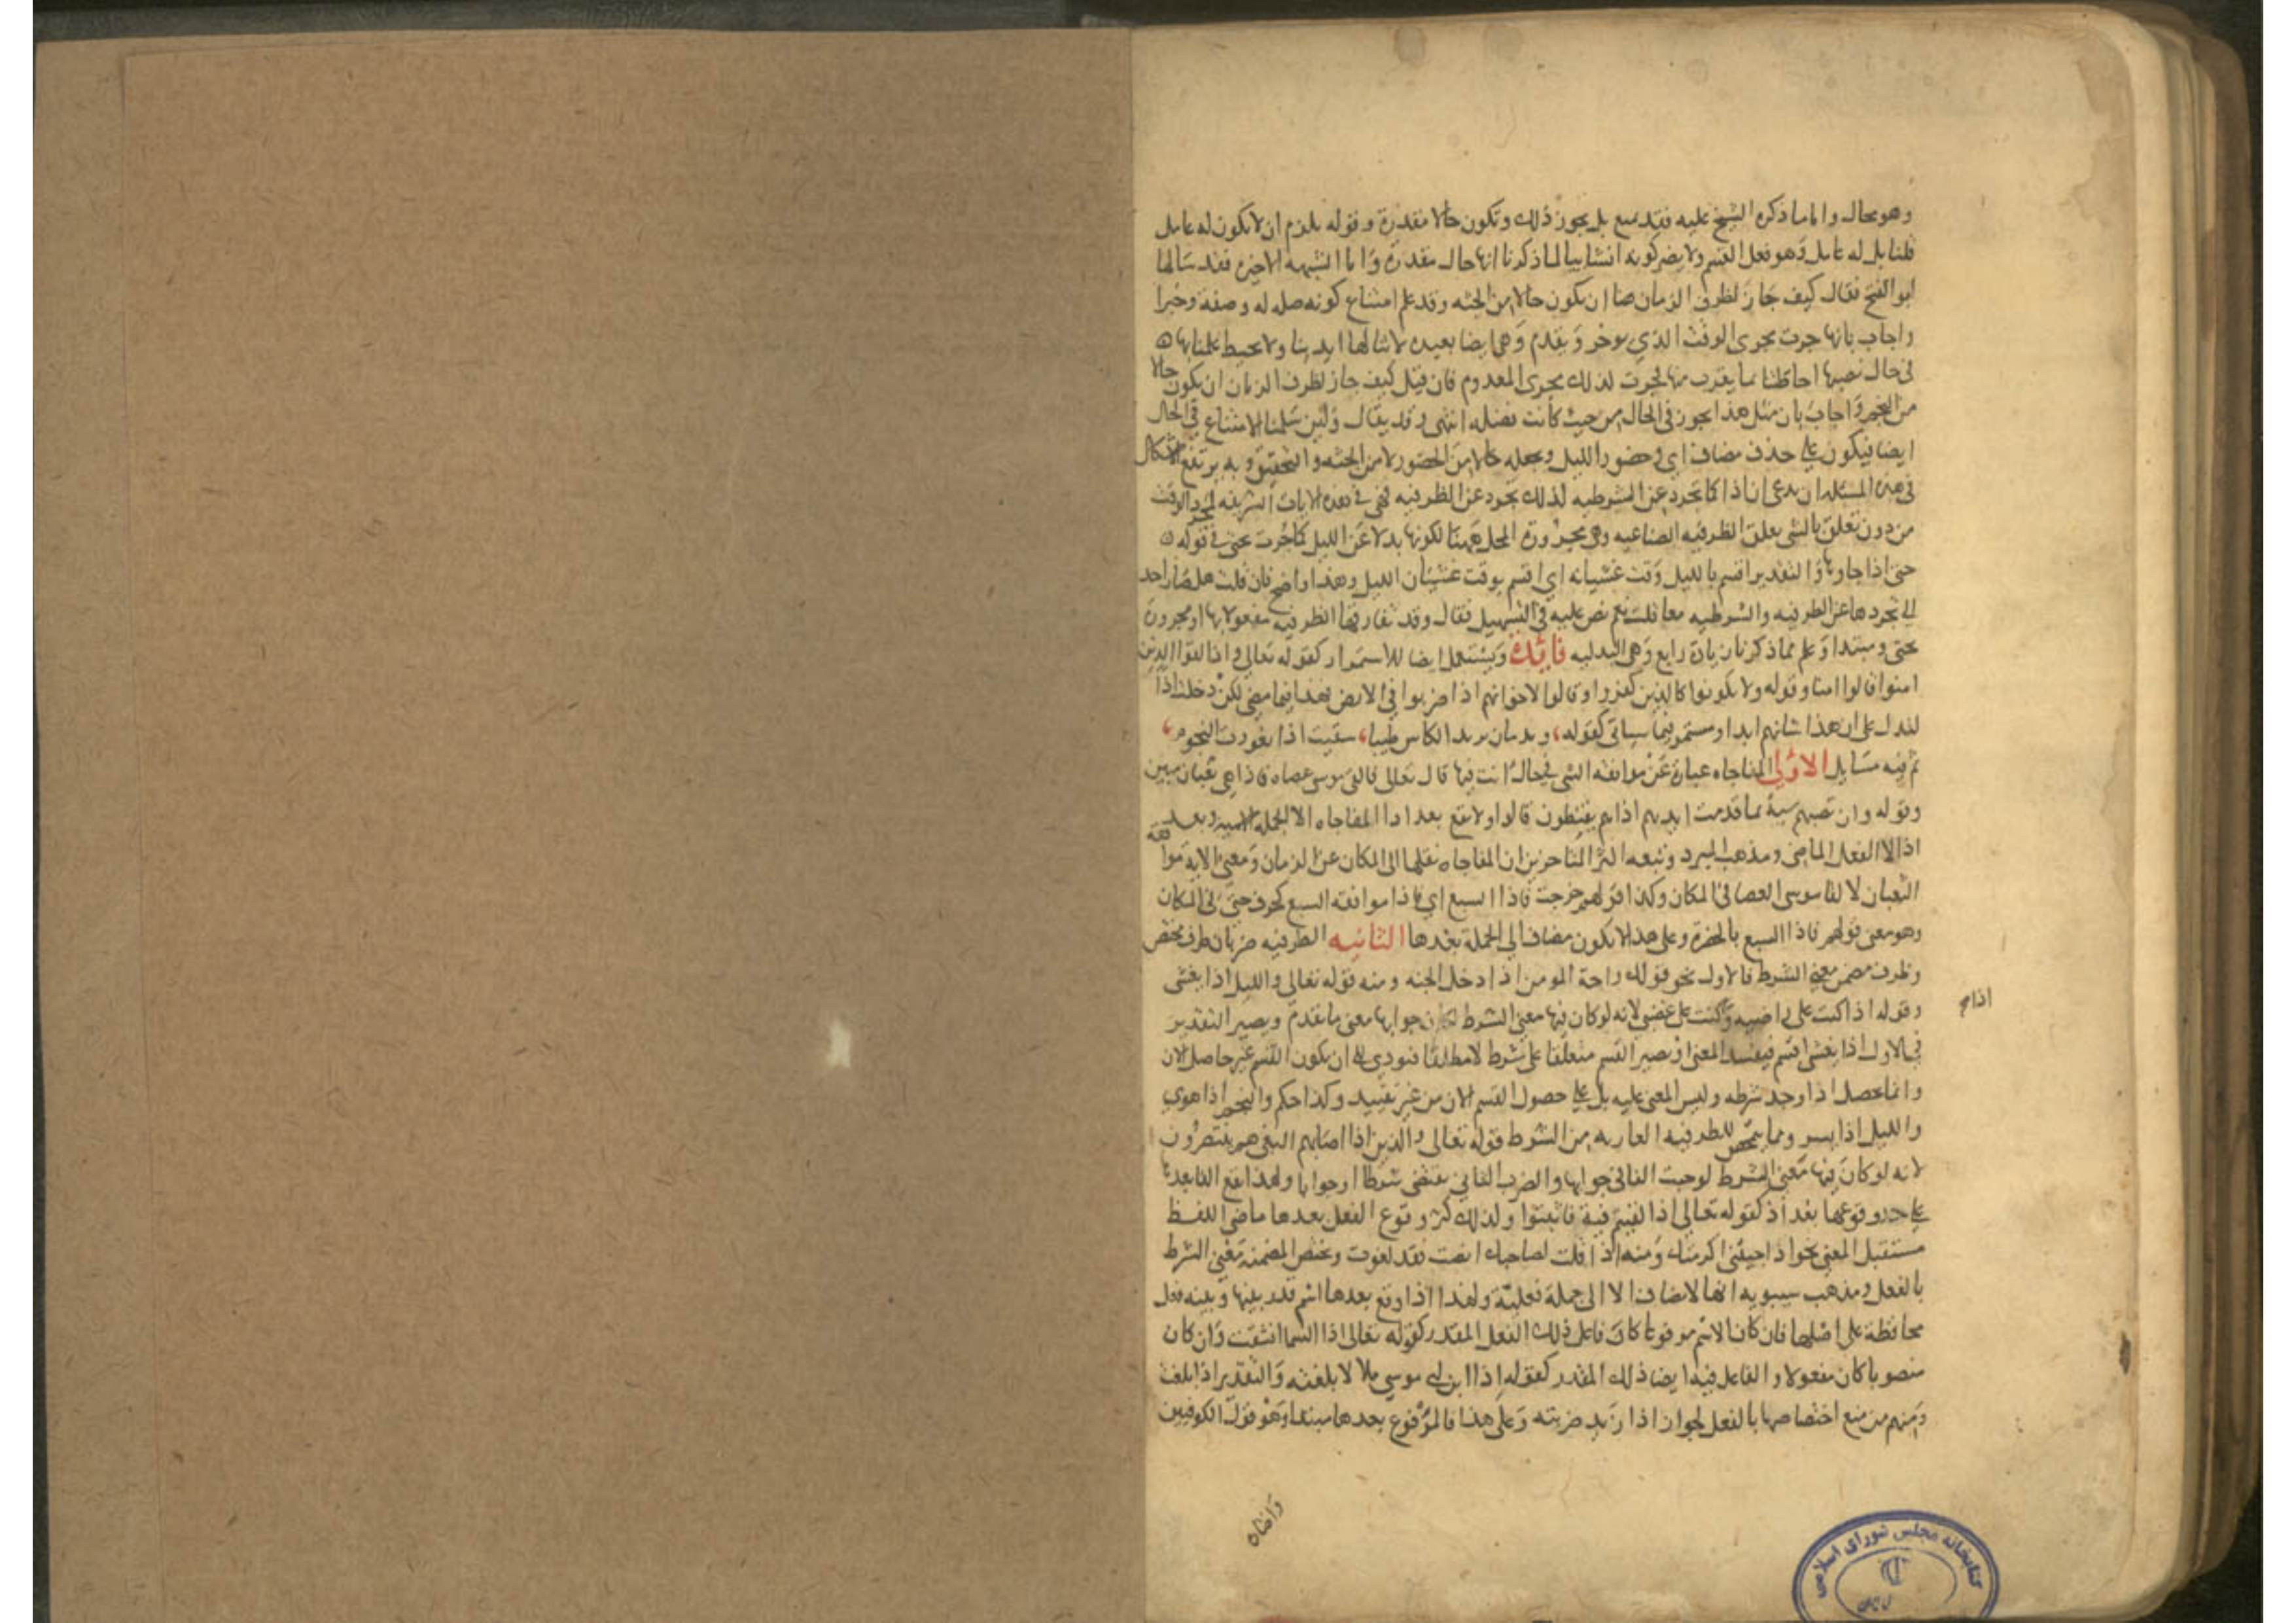 وهو محال واما ما ذكره الشيخ عليه فقد يمنع بل يجوز ذلك وتكون حالا مقدرة وقوله يلزم ان لا يكون له عامل
قلنا بل له عامل وهو فعل القسم ولا يضر كونه انشائيا لما ذكرنا انها حال مقدرة واما الشبهه الاخيره فقد سالها
ابو الفتح فقال كيف جاز لظرف الزمان هنا ان يكون حالا من الجثه وقد علم امتناع كونه صله له وصفة وخبرا
واجاب بانها جرت مجرى الوقت الذي يوخر ويقدم وهي ايضا بعيده لا تنالها ايدينا ولا يحيط علمنا بها
في حال نصبها احاطتنا بما يقرب منها فجرت لذلك مجرى المعدوم فان قيل كيف جاز لظرف الزمان ان يكون حالا
من النجم واجاب بان مثل هذا يجوز في الحال من حيث كانت فضله انتهى وقد يقال ولئن سلمنا الامتناع في الحال
ايضا فيكون على حذف مضاف اي وحضور الليل ويجعله حالا من الحضور لا من الجثه والتحقيق وبه يرتفع الاشكال
في هذه المسئله ان يدعى ان اذا كما تجرد عن الشرطيه كذلك تجرد عن الظرفيه فهي في هذه الايات الشريفه لمجرد الوقت
من دون تعلق بالشي تعلق الظرفيه الصناعيه وهي مجرورة المحل ههنا لكونها بدلا عن الليل كما جُرت بحتى في قوله
حتى اذا جاوها والتقدير اقسم بالليل وقت غشيانه اي اقسم بوقت غشيان الليل وهذا واضح فان قلت هل صار احد
الى تجردها عن الظرفيه والشرطيه معا قلت نعم نص عليه في التسهيل فقال وقد تفارقها الظرفيه مفعولا بها او مجرورة
بحتى ومبتدا وعلم مما ذكرنا زيادة رابع وهي البدليه فائدة وتستعمل ايضا للاستمرار كقوله تعالى واذا لقوا الذين
امنوا قالوا امنا وقوله ولا تكونوا كالذين كفروا وقالوا لاخوانهم اذا ضربوا في الارض فهذا فيما مضى لكن دخلت اذا
لتدل على ان هذا شانهم ابدا ومستمر فيما سياتي كقوله وندمان يزيد الكاس طيبا سقيت اذا تغورت النجوم
ثم فيه مسايل الاولى المفاجاه عبارة عن موافقه الشي في حال انت فيها قال تعالى فالقى موسى عصاه فاذا هي ثعبان مبين
وقوله وان تصبهم سيئة بما قدمت ايديهم اذا هم يقنطون قالوا ولا تقع بعد اذا المفاجاه الا الجمله الاسميه وبعد
اذ الا الفعل الماضي ومذهب المبرد وتبعه اكثر المتاخرين ان المفاجاه نقلها الى المكان عن الزمان ومعنى الايه موافقة
الثعبان لالقا موسى العصا في المكان وكذا قولهم خرجت فاذا السبع اي فاذا موافقة السبع لخروجي في المكان
وهو معنى قولهم فاذا السبع بالحضرة وعلى هذا لا يكون مضافا الى الجملة بعدها الثانيه الظرفيه ضربان ظرف محض
وظرف مضمن معنى الشرط فالاول نحو قولك راحة المومن اذا دخل الجنه ومنه قوله تعالى والليل اذا يغشى
وقوله اذا كنت على راضيه وكنت على غضبى لانه لو كان فيها معنى الشرط لكان جوابها معنى ما تقدم ويصير التقدير
في الاول اذا يغشى اقسم فيفسد المعنى اذ يصير القسم متعلقا على شرط لا مطلقا فيودي الى ان يكون القسم غير حاصل الان
وانما يحصل اذا وجد شرطه وليس المعنى عليه بل على حصول القسم الان من غير تقييد وكذا حكم والنجم اذا هوى
والليل اذا يسر ومما يتمحض للظرفيه العاريه من الشرط قوله تعالى والذين اذا اصابهم البغي هم ينتصرون
لانه لو كان فيها معنى الشرط لوجبت الفا في جوابها والضرب الثاني يقتضي شرطا وجوابا ولهذا تقع الفا بعدها
على حد وقوعها بعد اذ كقوله تعالى اذا لقيتم فية فاثبتوا ولذلك كثر وقوع الفعل بعدها ماضي اللفظ
مستقبل المعنى نحو اذا جيتني اكرمتك ومنه اذا قلت لصاحبك انصت فقد لغوت وتختص المضمنة معنى الشرط
بالفعل ومذهب سيبويه انها لا تضاف الا الى جملة فعلية ولهذا اذا وقع بعدها اسم قدر بينها وبينه فعل
محافظة على اصلها فان كان الاسم مرفوعا كان فاعل ذلك الفعل المقدر كقوله تعالى اذا السما انشقت وان كان
منصوبا كان مفعولا والفاعل فيه ايضا ذلك المقدر كقوله اذا ابن ابي موسى بلالا بلغته والتقدير اذا بلغت
ومنهم من منع اختصاصها بالفعل لجواز اذا زيد ضربته وعلى هذا فالمرفوع بعدها مبتدا وهو قول الكوفيين
كتابخانه مجلس شورای اسلامی